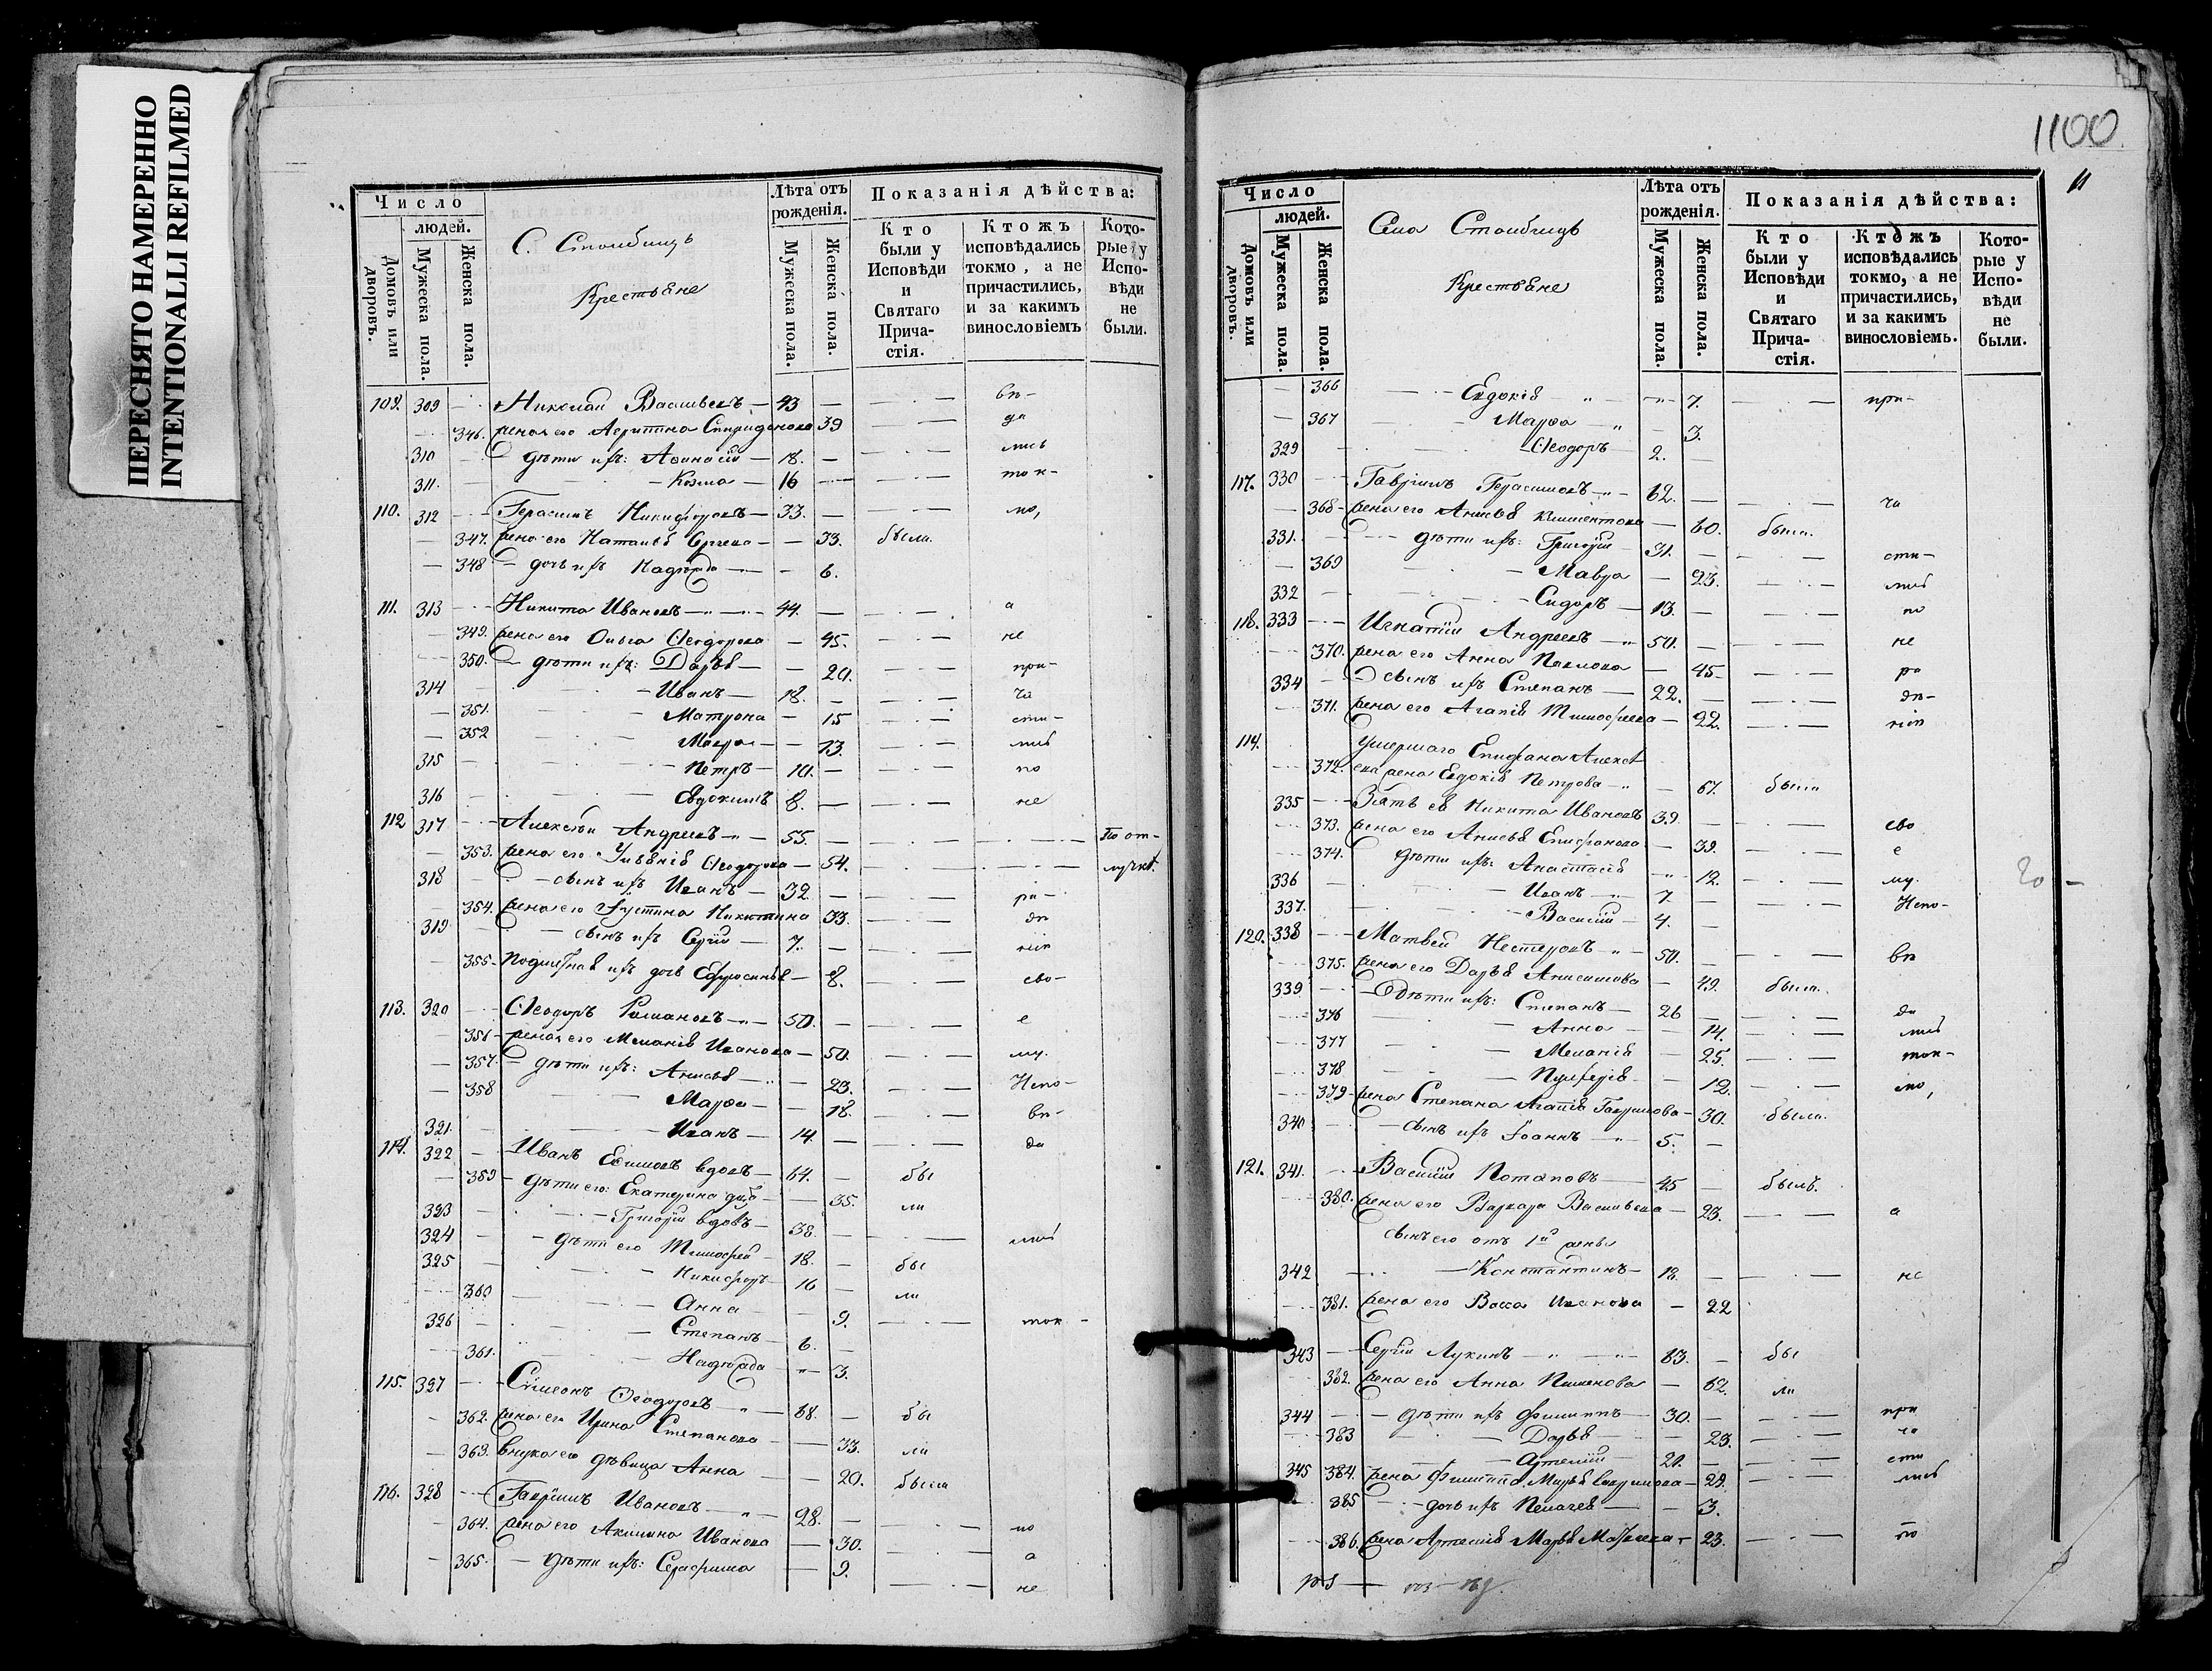 ПЕРЕСНЯТО НАМЕРЕННО
INTENTIONALLI REFILMED
Число
людей.
Домовъ или дворовъ.
Мужеска пола.
Женска пола.
С. Столбищъ
Крестьяне
Лѣта отъ рожденія.
Мужеска пола.
Женска пола.
Показанія дѣйства:
Кто были у Исповѣди и Святаго Прича-стія.
Ктожъ исповѣдались токмо, а не причастились, и за какимъ винословіемъ
Кото-рые у Испо-вѣди не были.
109. 309 Николай Васильевъ 43 вѣ-
346. жена его Агриппина Спиридонова 39 да
310 дѣти ихъ: Аѳанасій 18. лись
311. Козма 16 ток-
110. 312 Герасимъ Никифоровъ 33. мо,
347. жена его Наталья Сергеева 33. была.
348 дочь ихъ Надежда 6.
111. 313 Никита Ивановъ 44. а
349. жена его Ольга Ѳеодорова 45. не
350. дѣти ихъ: Дарья 20. при-
314 Иванъ 18. ча
351. Матрона 15 сти-
352 Мавра 13. лись
315 Петръ 10. по
316 Евдокимъ 8. не
112 317 Алексѣй Андреевъ 55. По от-
353. жена его Ульянія Ѳеодорова 54. лучкѣ.
318 сынъ ихъ Иванъ 32. ра-
354. жена его Іустина Никитина 33. дѣ
319 сынъ ихъ Сергій 7. нію
355. дочь Ефросинья 8. сво-
113. 320 Ѳеодоръ Романовъ 50. е
356 жена его Меланія Иванова 50. му.
357. дѣти ихъ: Анисья 23. Испо-
358 Марѳа 18. вѣ-
321. Иванъ 14. да
114. 322 Иванъ Ефимовъ вдовъ 64. бы
359 дѣти его: Екатерина 35. ли
323 Григорій вдовъ 38. лись
324 дѣти его Тимофей 18. бы
325 Никифоръ 16 ли
360 Анна 9. ток-
326 Степанъ 6.
361. Надежда 3.
115. 327 Симеонъ Ѳеодоровъ 68. бы
362. жена его Ирина Степанова 33. ли
363. внука его дѣвица Анна 20. была
116. 328 Гавріилъ Ивановъ 28. мо
364. жена его Акилина Иванова 30. а
365. дѣти ихъ: Серафима 9. не
1100
11
Число
людей.
Домовъ или дворовъ.
Мужеска пола.
Женска пола.
Села Столбищъ
Крестьяне
Лѣта отъ рожденія.
Мужеска пола.
Женска пола.
Показанія дѣйства:
Кто были у Исповѣди и Святаго Прича-стія.
Ктожъ исповѣдались токмо, а не причастились, и за какимъ винословіемъ.
Кото-рые у Испо-вѣди не были.
366 Евдокія 7. при-
367 Марѳа 3.
329 Ѳеодоръ 2.
117. 330 Гавріилъ Герасимовъ 62. ча
368 жена его Анисья Климентова 60. была.
331. дѣти ихъ: Григорій 31. сти-
369 Мавра 23. лись
332 Сидоръ 13. по
118. 333 Игнатій Андреевъ 50. не
370. жена его Анна Павлова 45 ра
334 сынъ ихъ Степанъ 22. дѣ-
371. жена его Агапія Тимофеева 22. нію
119. умершаго Епифана Алексѣ
372. ева жена Евдокія Петрова 67. была
335 Зять ея Никита Ивановъ 39 сво
373. жена его Анисья Епифанова 39. е
374. дѣти ихъ: Анастасія 12. му.
336 Иванъ 7. Испо-
337. Василій 4.
120. 338 Матвей Нестеровъ 50. вѣ
375. жена его Дарья Анисимова 49. была.
339 дѣти ихъ: Степанъ 26 да
376 Анна 14. лись
377 Меланія 25. ток-
378 12. мо,
379 жена Степана Агапія Гаврилова 30. была.
340 сынъ ихъ Іоаннъ 5.
121. 341. Василій Потаповъ 45 былъ.
380. жена его Варвара Васильева 23. а
сынъ его отъ 1й жены
342 Константинъ 18. не
381. жена его Васса Иванова 22
343 Сергій Лукинъ 63. бы
382. жена его Анна Пименова 62. ли
344 дѣти ихъ Филиппъ 30. при
383 Дарья 23. ча
345 Артемій 20. сти
384. жена Филиппа Марья 29. лись
385 дочь ихъ Пелагея 3.
386. жена Артемія Марья 23. по